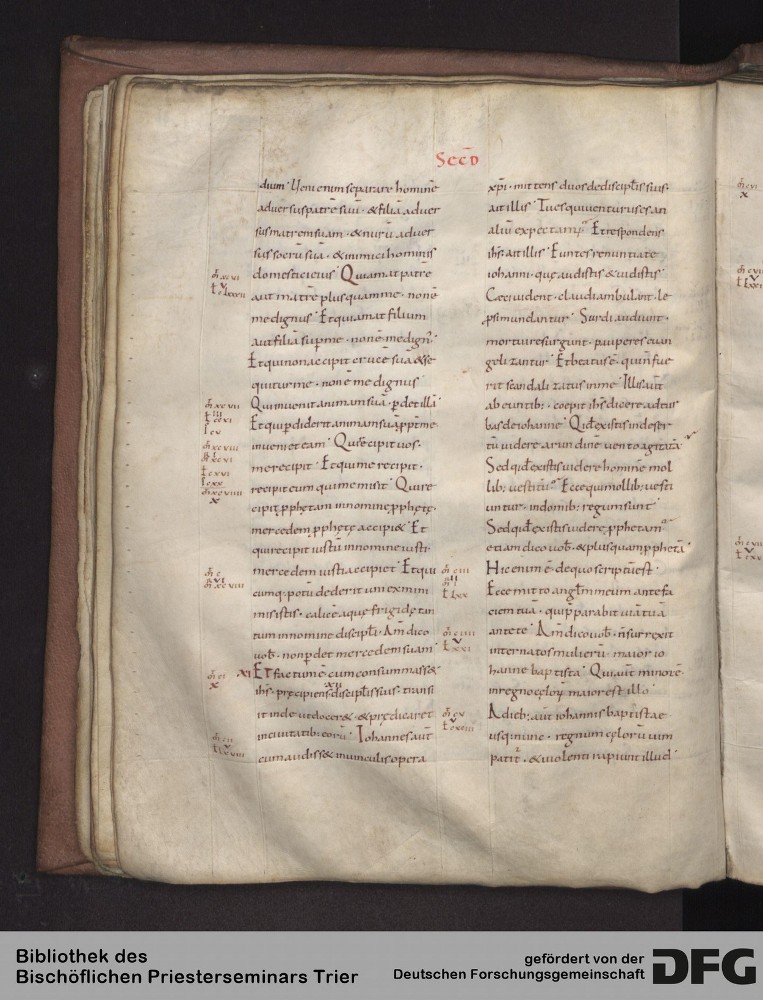 Sccd
dium · Ueni enim separare hominē
aduersus patrē suū · & filiā aduer
sus matrem suam · & nurū aduer
sus socrū suā · & inimici hominis
domestici eius · Qui amat patrē
aut matrē plus quam me · non ē
me dignus · Et qui amat filium
aut filiā sup me · non ē me dign
Et qui non accipit crucē suā & se
quitur me · non ē me dignus
Qui inuenit animam suā · pdet illā
Et qui pdiderit animam suā ppt me
inueniet eam · Qui recipit uos ·
me recipit · Et qui me recipit ·
recipit eum qui me misit · Qui re
cipit pphetam in nomine pphetę ·
mercedem pphetę accipi& · Et
qui recipit iustū in nomine iusti ·
mercedem iusti accipiet · Et qui
cumq; potū dederit uni ex mini
mis istis · calicē aque frigidę tan
tum in nomine discipli · Am̄ dico
uob · non pdet mercedem suam
XI Et factum ē cum consummass&
ihs · pręcipiens xii discipulis suis · transi
it inde ut docer& · & prędicaret
in ciuitatibus eorū · Iohannes aut
cum audiss& in uinculis opera
xpi · mittens duos de discipulis suis ·
ait illis · Tu es qui uenturus es an
aliū expectam · Et respondens
ihs · ait illis · Euntes renuntiate
iohanni · quę audistis & uidistis ·
Ceci uident · claudi ambulant · le
psi mundantur · Surdi audiunt ·
mortui resurgunt · pauperes euan
gelizantur · Et beatus ē · qui n̄ fue
rit scandalizatus in me · Illis aut
abeuntib: · coepit ihs dicere ad tur
bas de iohanne · Quid existis in deser
tū uidere arundinē uento agitatā
Sed quid existis uidere hominē mol
lib: uestitū · Ecce qui mollib: uesti
untur · in domib: regum sunt ·
Sed quid existis uidere pphetam
etiam dico uob · & plus quam pphetā ·
Hic enim ē · de quo scriptū est ·
Ecce mitto anglm meum ante fa
ciem tuā · qui pparabit uiā tuā
ante te · Am̄ dico uob · n̄ surrexit
inter natos mulierū · maior io
hanne baptista · Qui aut minor ē
in regno cęlor maior est illo ·
A dieb: aut iohannis baptistae
usq; nunc · regnum cęlorū uim
patit · & uiolenti rapiunt illud ·
Bibliothek des
Bischöflichen Priesterseminars Trier
gefördert von der
Deutschen Forschungsgemeinschaft
DFG